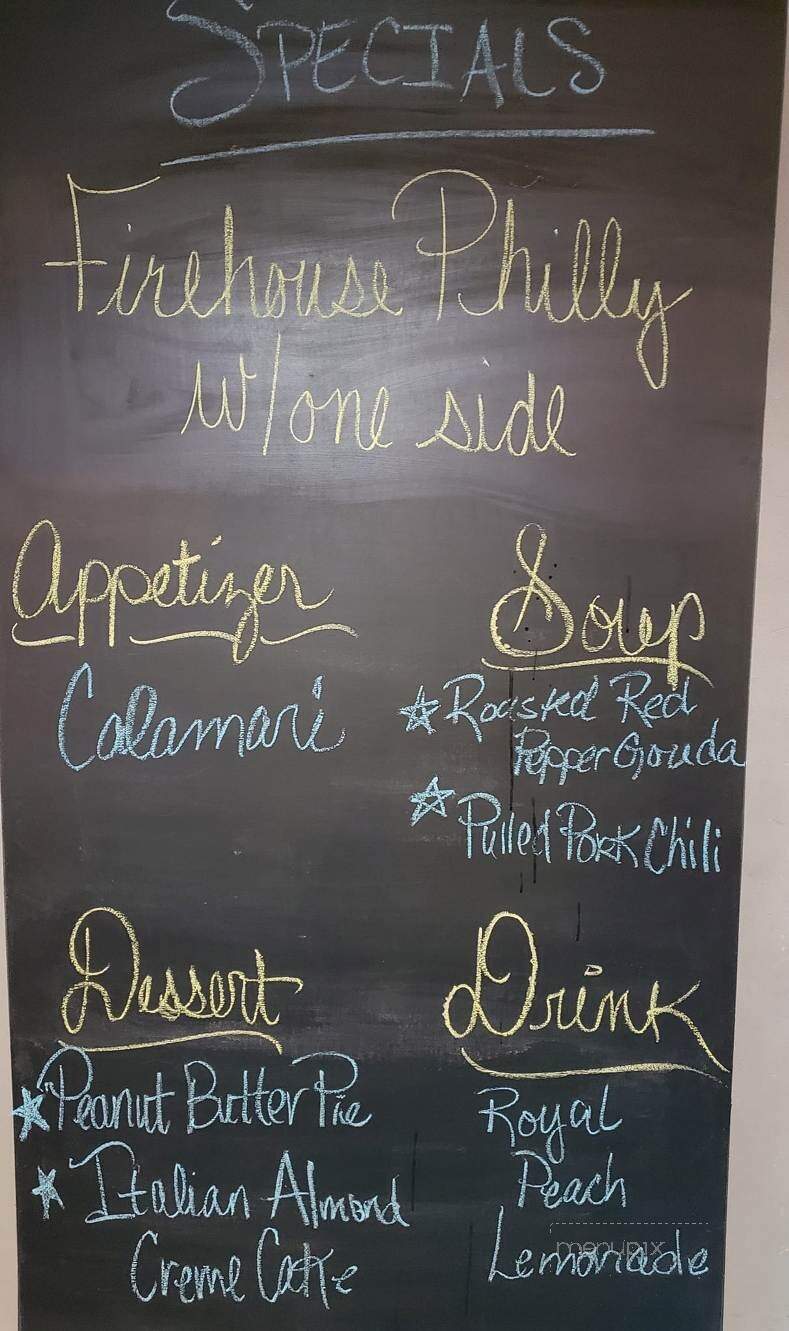 SPECIALS
Firehouse Philly
w/one side
Appetizer
Calamari
Soup
Roasted Red
Pepper Gouda
Pulled Pork Chili
Dessert
Peanut Butter Pie
Italian Almond
Creme Cake
Drink
Royal
Peach
Lemonade
menupix